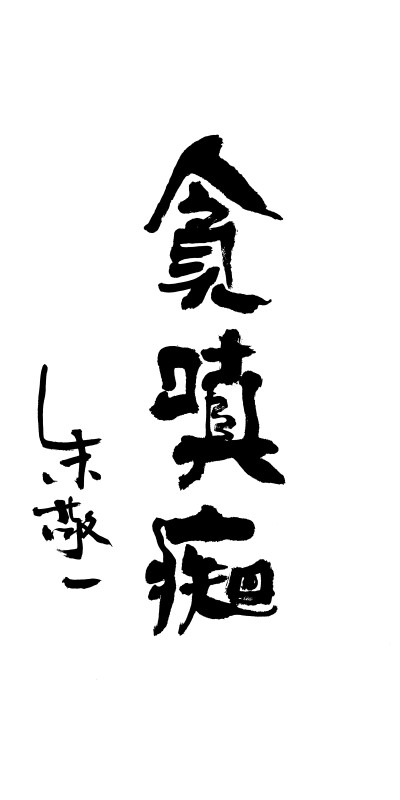 貪嗔痴
朱敬一